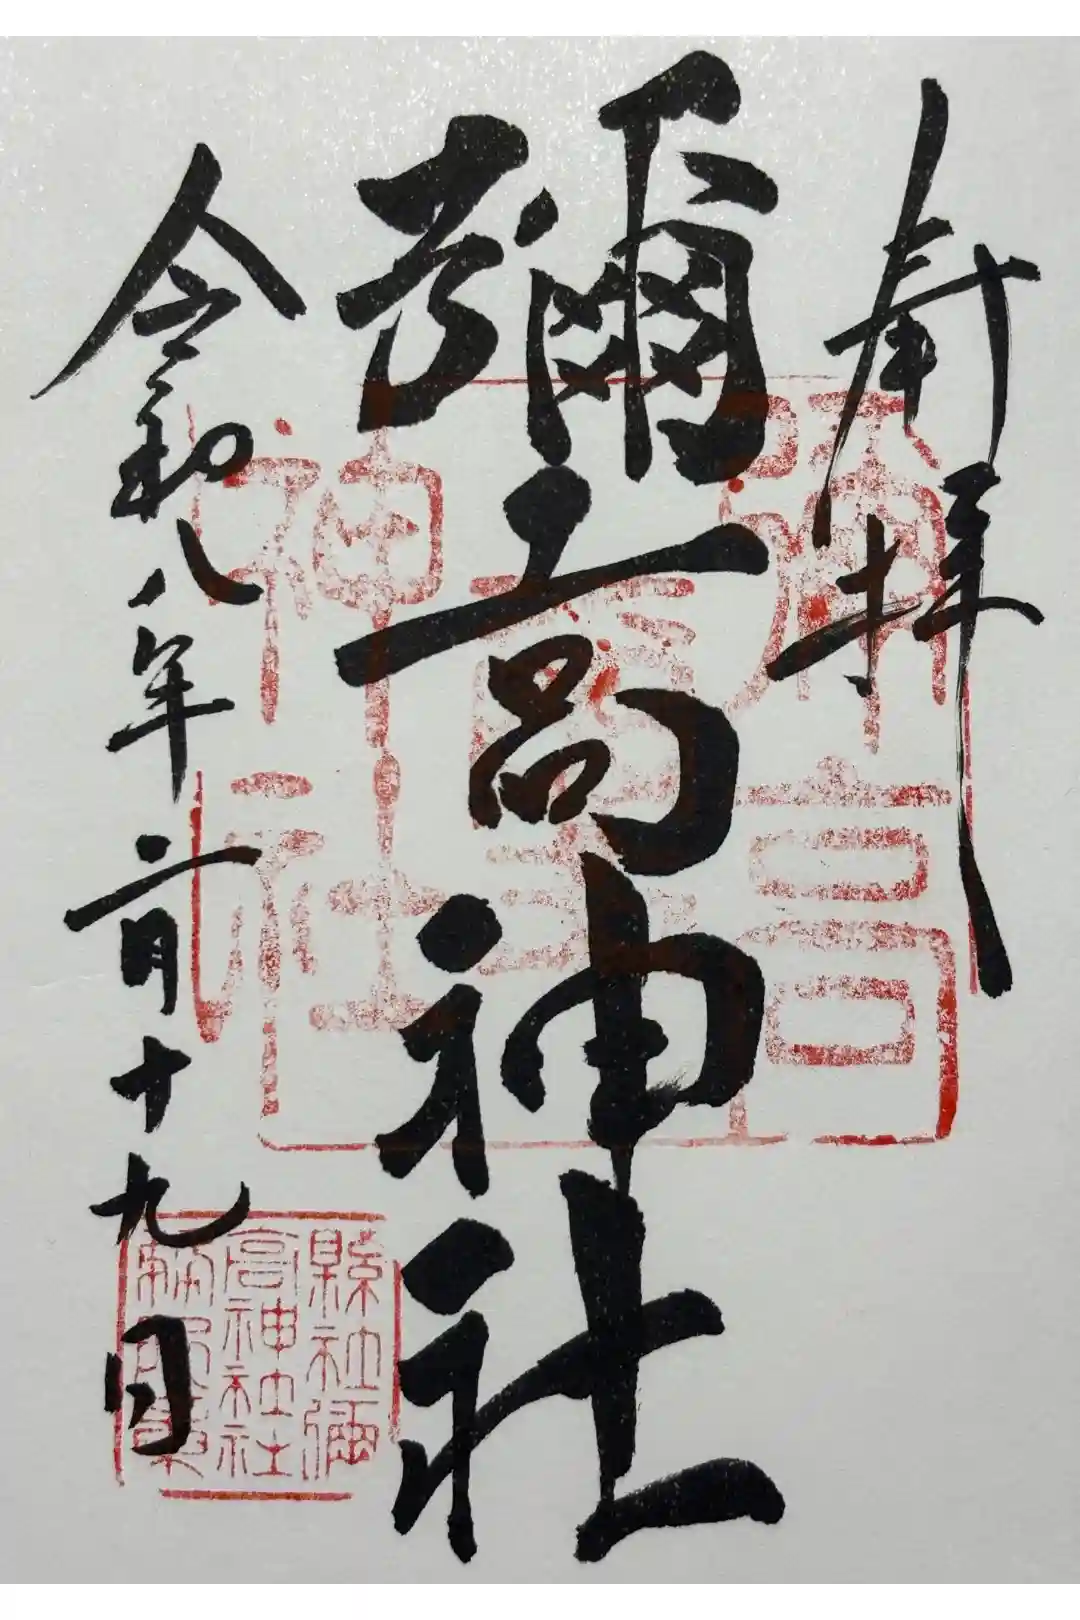 奉拝
彌高神社
令和八年二月十九日
彌高
神社
縣社彌
高神社社
務所